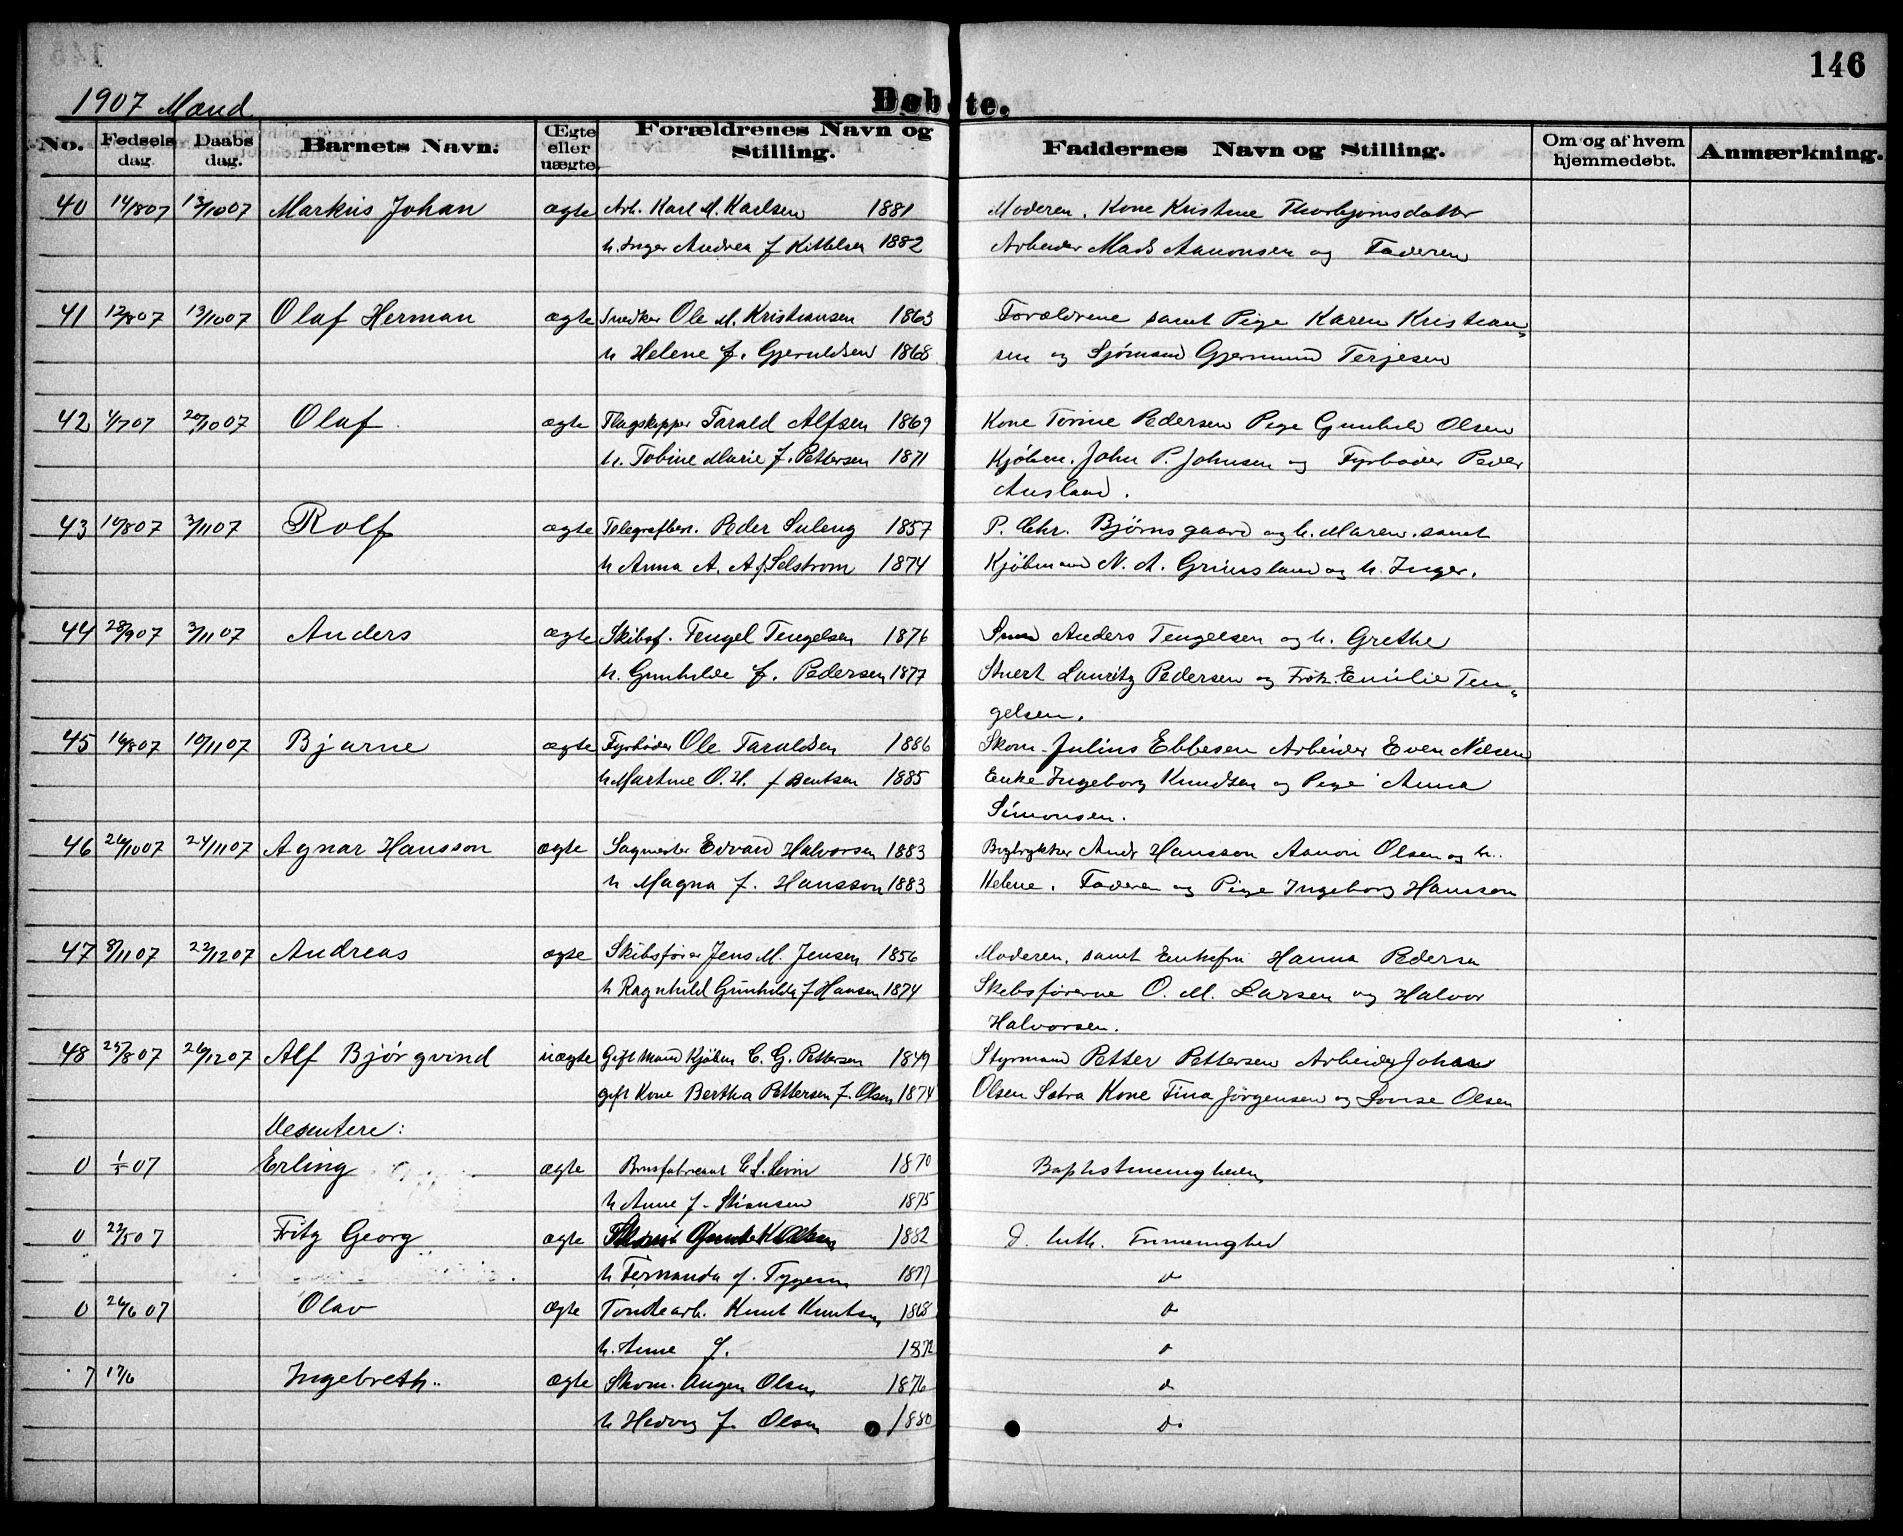 146
1907 Mænd.
Døbte.
No. Fødsels dag. Daabs dag. Barnets Navn. Ægte eller uægte. Forældrenes Navn og Stilling. Faddernes Navn og Stilling. Om og af hvem hjemmedøbt. Anmærkning.
40 14/8 07 13/10 07 Markus Johan ægte Arb. Karl M. Karlsen 1881 Moderen, Kone Kristine Thorbjørnsdatter
h. Inger Andrea f Kittelsen 1882 Arbeider Mads Aanonsen og Faderen
41 12/8 07 13/10 07 Olaf Herman ægte Snedker Ole M. Kristiansen 1863 Forældrene samt Pige Karen Kristian-
h Helene f. Gjeruldsen 1868 sen og Sjømand Gjermund Terjesen
42 1/7 07 20/10 07 Olaf ægte Flagskipper Tarald Alfsen 1869 Kone Torine Pedersen Pige Gunhild Olsen
h. Tobine Marie f. Pettersen 1871 Kjøbm. John P. Johnsen og Fyrbøder Peder
Ausland.
43 10/8 07 3/11 07 Rolf ægte Telegrafbest. Peder Suleng 1857 P. Chr. Bjørnsgaard og h. Maren. samt
h Anna A. A f Selstrom 1874 Kjøbmand N. A. Grimsland og h. Inger.
44 28/9 07 3/11 07 Anders ægte Skibsf. Tengel Tengelsen 1876 Anders Tengelsen og h. Grethe
h. Gunhilde f. Pedersen 1877 Stuert Lauritz Pedersen og Frøk. Emilie Ten-
gelsen.
45 16/8 07 10/11 07 Bjarne ægte Fyrbøder Ole Taraldsen 1886 Skom. Julius Ebbesen Arbeider Even Nilsen
h Martine O. H. f Bentsen 1885 Enke Ingeborg Knudsen og Pige Anna
Simonsen.
46 26/10 07 24/11 07 Agnar Hansson ægte Sagmester Edvard Halvorsen 1883 Bogtrykker Andr Hansson Aanon Olsen og h.
h Magna f. Hansson 1883 Helene. Faderen og Pige Ingeborg Hansson
47 8/11 07 22/12 07 Andreas ægte Skibsfører Jens M. Jensen 1856 Moderen, samt Enkefru Hanna Pedersen
h Ragnhild Gunhilde f Hansen 1874 Skibsførerne O. M. Larsen og Halvor
Halvorsen.
48 25/8 07 26/12 07 Alf Bjørgvind uægte Gift Mand Kjøbm C. G. Pettersen 1849 Styrmand Petter Pettersen Arbeider Johan
gift Kone Bertha Pettersen f. Olsen 1874 Olsen Sætra Kone Tina Jørgensen og Lovise Olsen
Desentere:
0 1/5 07 Erling ægte Brusfabrikant 1870 Baptistmenigheden
h Anne f. Stiansen 1875
0 22/5 07 Fritz Georg ægte 1882 D. luth. Frimenighed
h Fernanda f. Tygesen 1877 do
0 26/6 07 Olav ægte Tøndearb. Knut Knutsen 1868 do
h. Anne f. 1872 do
7 17/6 Ingebreth ægte Skom. Augen Olsen 1876 do
h Hedvig f. Olsen 1880 do